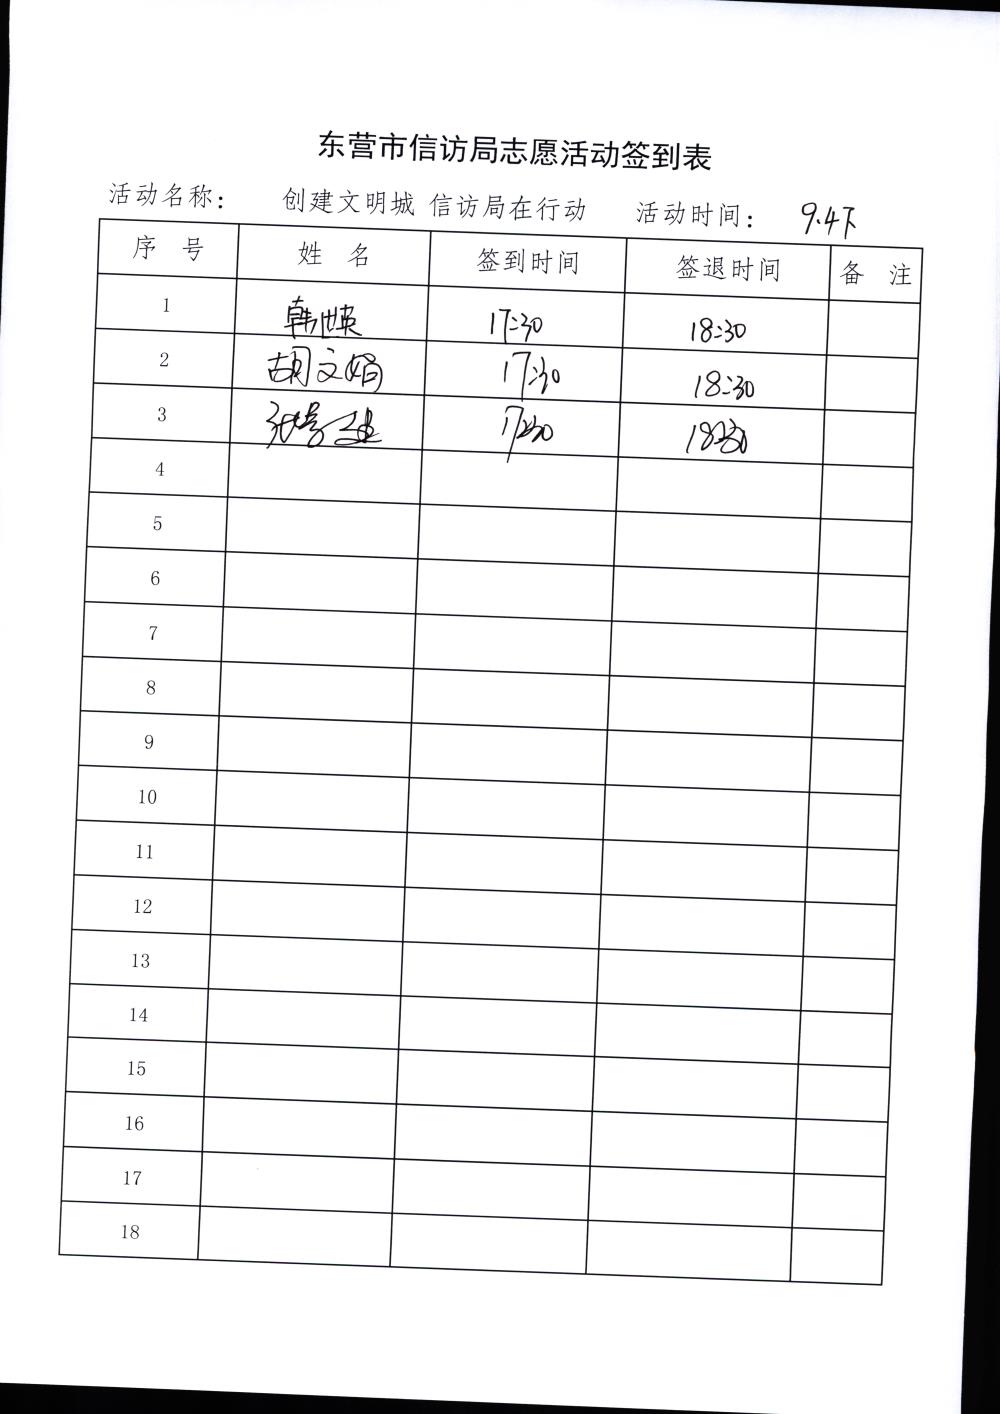 东营市信访局志愿活动签到表
活动名称： 创建文明城 信访局在行动 活动时间： 9.4下
序 号 姓 名 签到时间 签退时间 备 注
1 韩世英 17:30 18:30
2 胡文娟 17:30 18:30
3 17:30 18:30
4
5
6
7
8
9
10
11
12
13
14
15
16
17
18